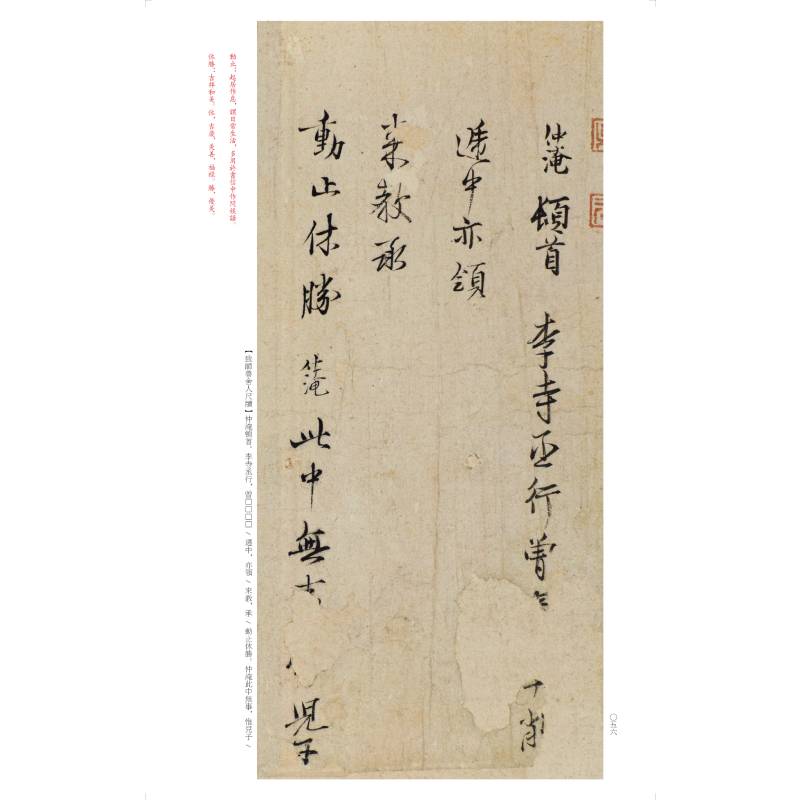 仲淹頓首李寺丞行曾
遞中亦領
來教承
動止休勝仲淹此中無
兒子
動止：起居作息，謂日常生活，多用於書信中作問候語。
休勝：吉祥和美。休，吉慶，美善，福祿。勝，優美。
【致師魯舍人尺牘】仲淹頓首。李寺丞行，曾□□□□ \ 遞中，亦領 \ 來教，承 \ 動止休勝。仲淹此中無事，惟兒子 \
〇五六